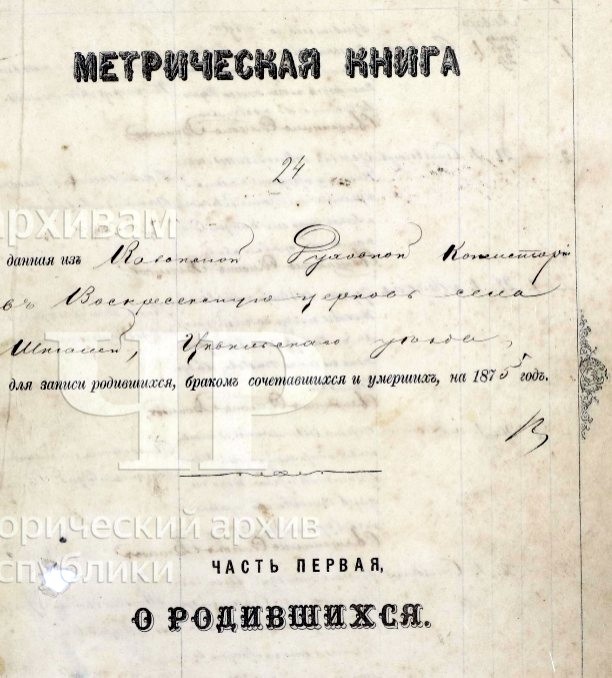 МЕТРИЧЕСКАЯ КНИГА
24
архивам
данная изъ Казанской Духовной Консисторіи
въ Воскресенскую церковь села
Цивильскаго уѣзда,
для записи родившихся, бракомъ сочетавшихся и умершихъ, на 1875 годъ.
ЧР
орический архив
спублики
ЧАСТЬ ПЕРВАЯ,
О РОДИВШИХСЯ.